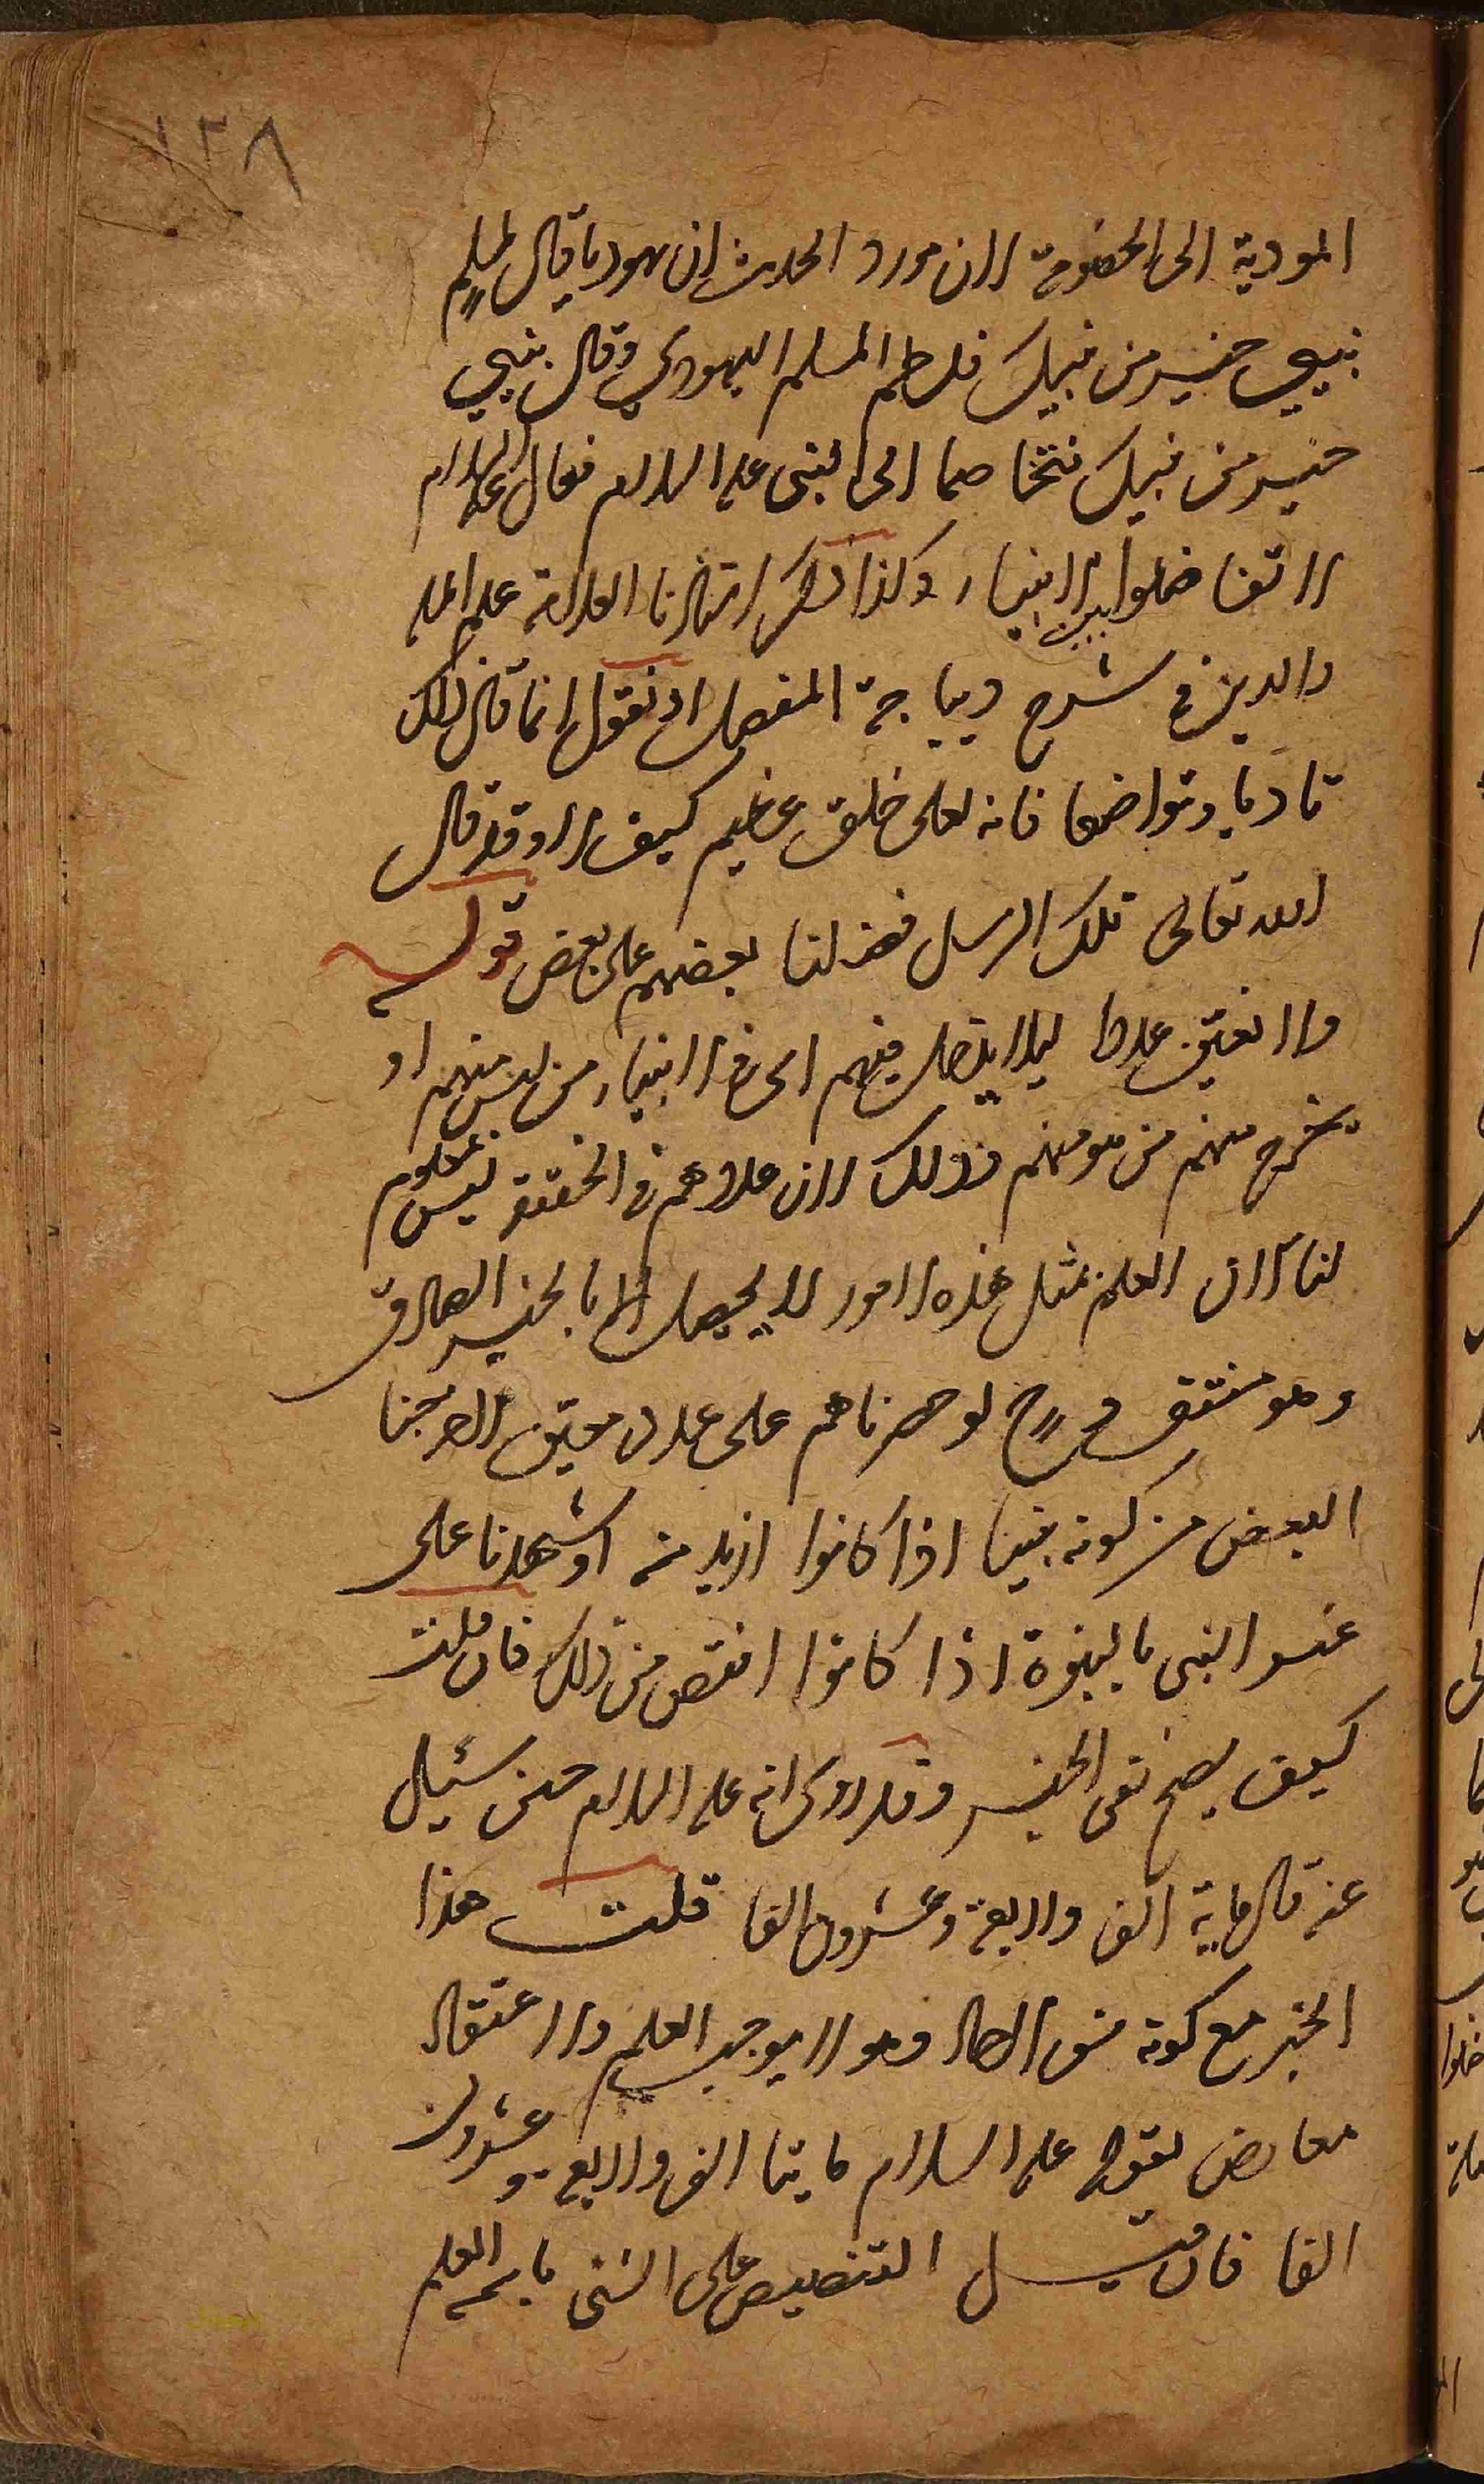 ١٣٨
المودية الى الخصومة لان مورد الحديث ان يهوديا قال لمسلم
نبيي خير من نبيك فلطم المسلم اليهودي وقال نبيي
خير من نبيك فتخاصما الى النبى عليه السلام فقال عليه السلام
لا تفاضلوا بين الانبياء وكذا ذكر استاذنا العلامة علم الملة
والدين في شرح ديباجة المفصل او نقول انما قال ذلك
تادبا وتواضعا فانه لعلى خلق عظيم كيف لا وقد قال
الله تعالى تلك الرسل فضلنا بعضهم على بعض قوله
ولا نعين عددا ليلا يدخل فيهم اى في الانبياء من ليس منهم او
يخرج منهم من هو منهم وذلك لان عددهم في الحقيقة ليس بمعلوم
لنا لان العلم بمثل هذه الامور لا يحصل الا بالخبر الصادق
وهو منتف فح لو حصرناهم على عدد معين لاخرجنا
البعض من كونه نبيا اذا كانوا ازيد منه او شهدنا على
غير النبى بالنبوة اذا كانوا انقص من ذلك فان قلت
كيف يصح نفى الخبر وقد روى انه عليه السلام حين سئيل
عنه قال ماية الف واربعة وعشرون الفا قلت هذا
الخبر مع كونه من الاحاد وهو لا يوجب العلم والاعتقاد
معارض بقوله عليه السلام مايتا الف واربع وعشرون
الفا فان قيل التنصيص على الشئ باسمه العلم